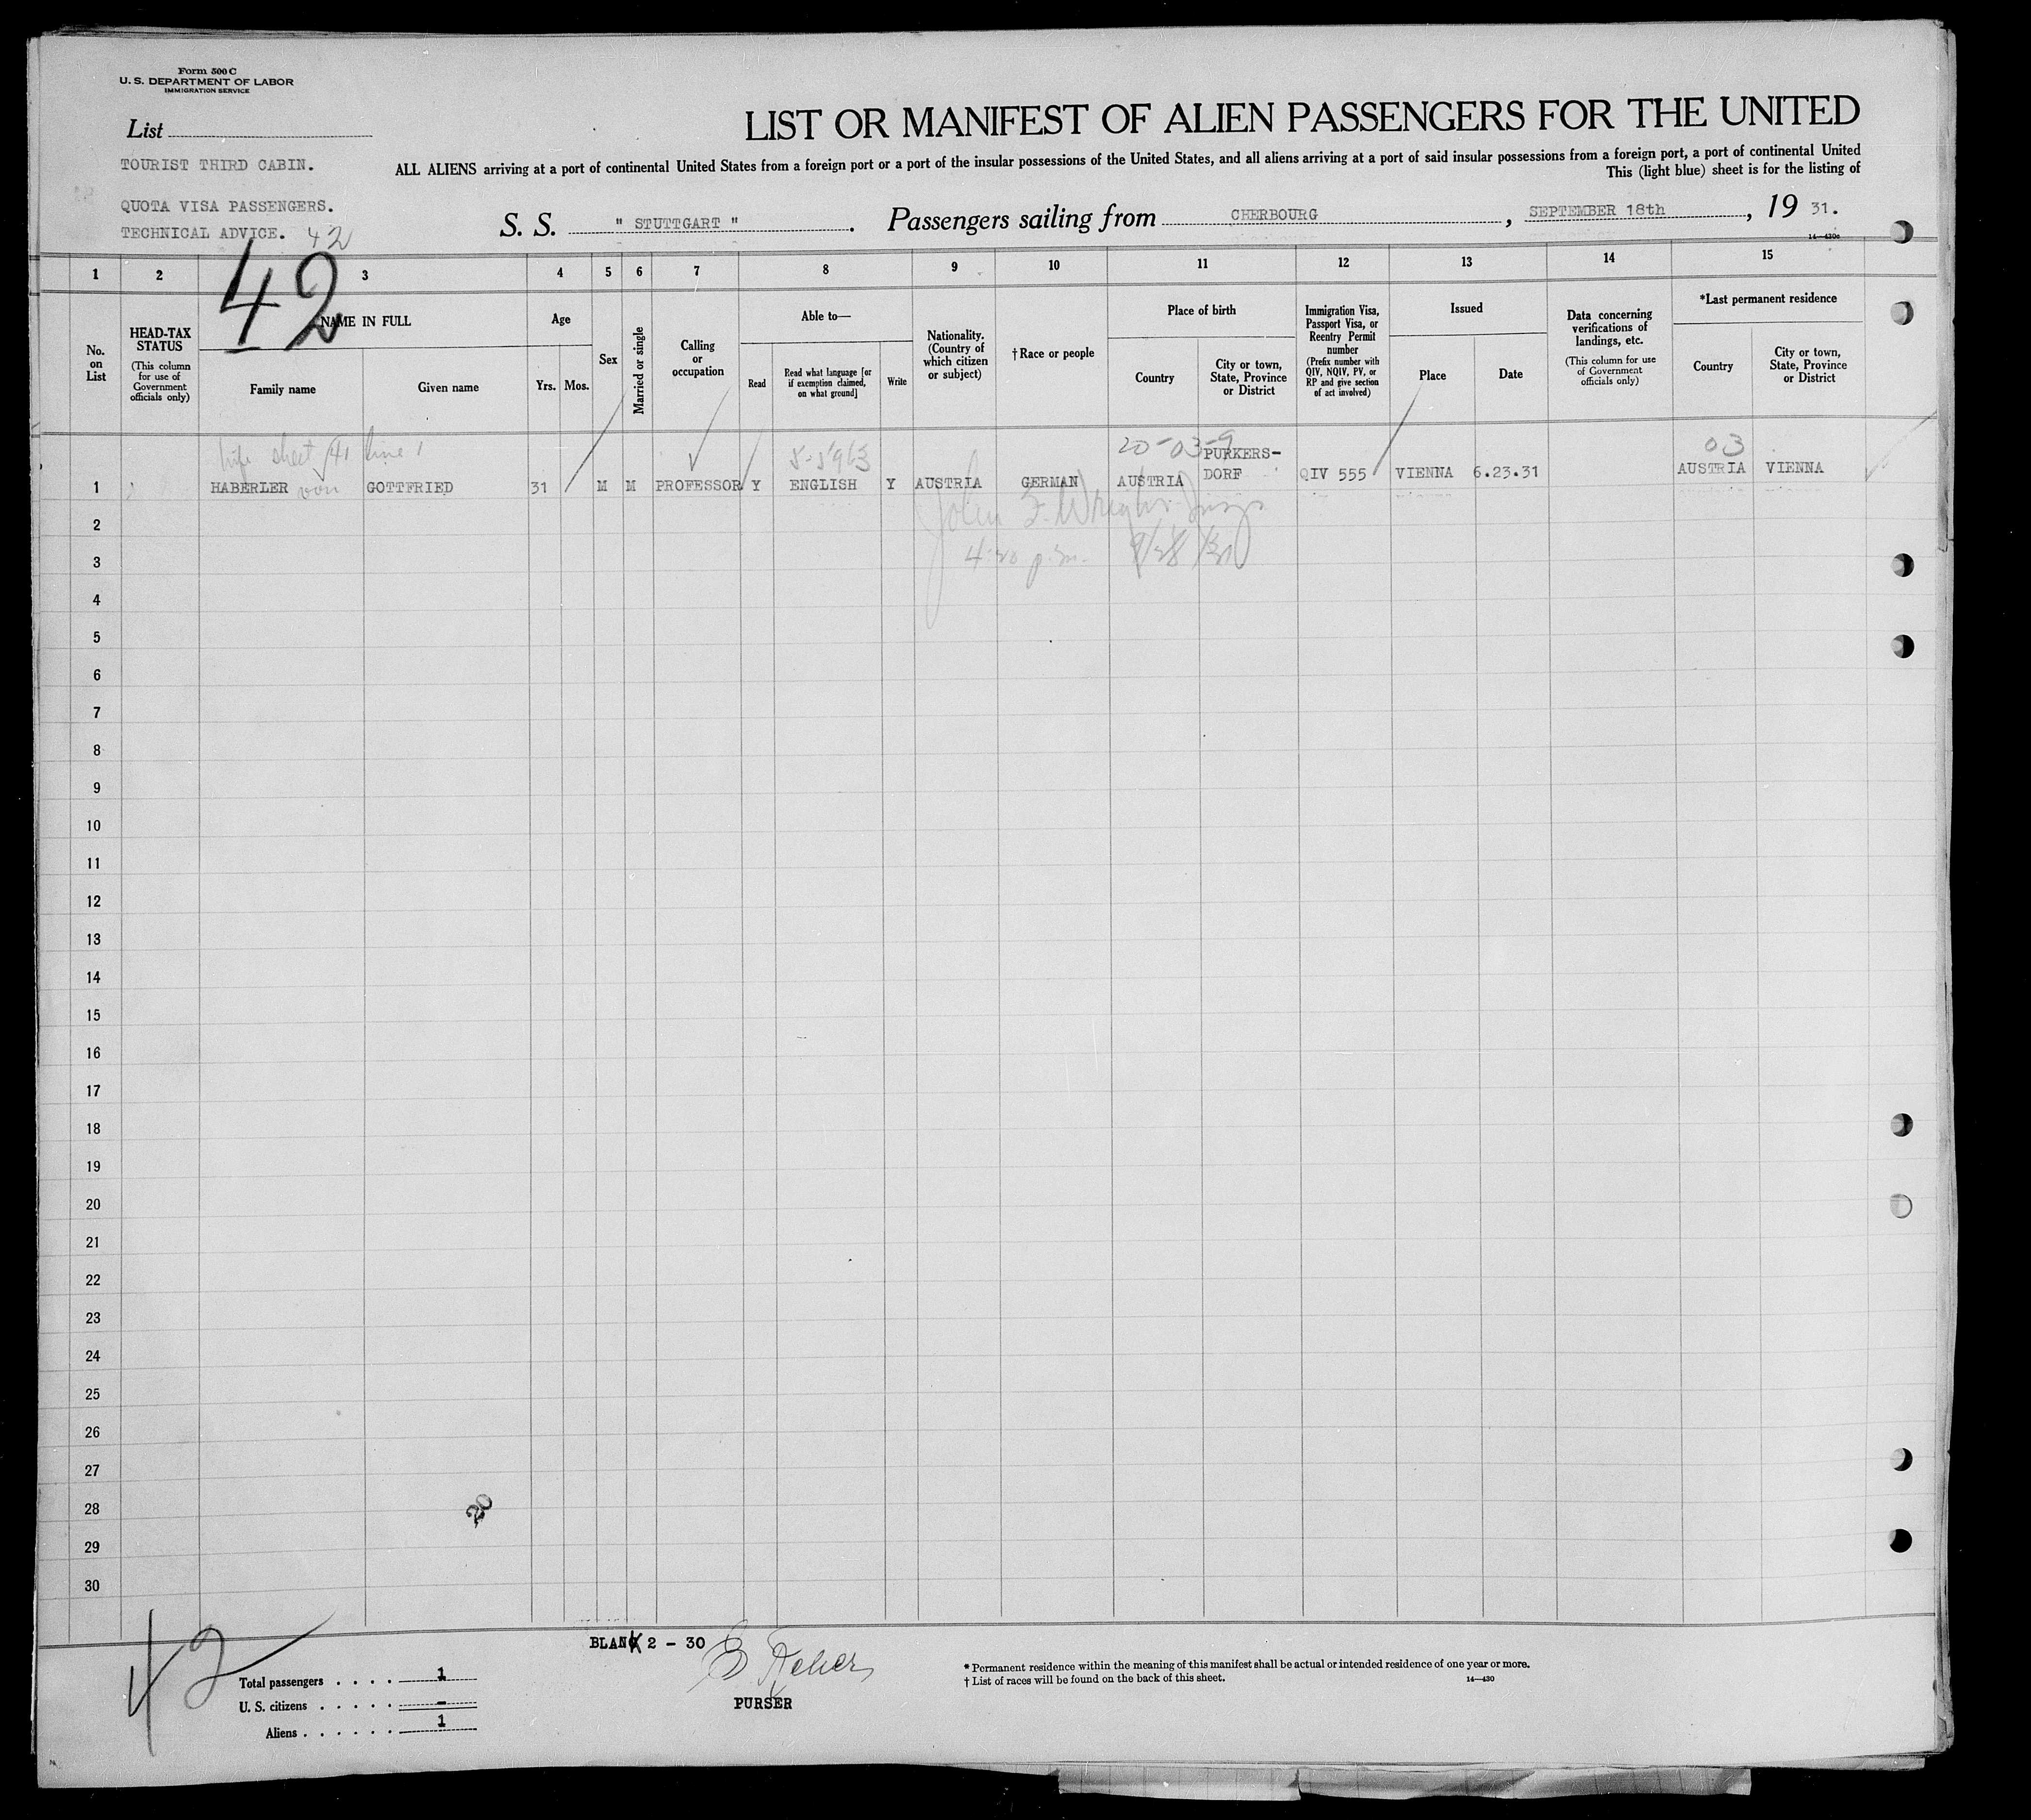 Form 500 C
U. S. DEPARTMENT OF LABOR
IMMIGRATION SERVICE
List
LIST OR MANIFEST OF ALIEN PASSENGERS FOR THE UNITED
TOURIST THIRD CABIN.
ALL ALIENS arriving at a port of continental United States from a foreign port or a port of the insular possessions of the United States, and all aliens arriving at a port of said insular possessions from a foreign port, a port of continental United
This (light blue) sheet is for the listing of
QUOTA VISA PASSENGERS.
TECHNICAL ADVICE. 42
S. S. " STUTTGART ". Passengers sailing from CHERBOURG, SEPTEMBER 18th, 19 31.
42
1 2 3 4 5 6 7 8 9 10 11 12 13 14 15
No. on List
HEAD-TAX STATUS
(This column for use of Government officials only)
NAME IN FULL
Family name
Given name
Age
Yrs.
Mos.
Sex
Married or single
Calling or occupation
Able to—
Read
Read what language [or if exemption claimed, on what ground]
Write
Nationality. (Country of which citizen or subject)
†Race or people
Place of birth
Country
City or town, State, Province or District
Immigration Visa, Passport Visa, or Reentry Permit number
(Prefix number with QIV, NQIV, PV, or RP and give section of act involved)
Issued
Place
Date
Data concerning verifications of landings, etc.
(This column for use of Government officials only)
*Last permanent residence
Country
City or town, State, Province or District
wife sheet 41 line 1
20-03-9
03
1 HABERLER von GOTTFRIED 31 M M PROFESSOR Y ENGLISH Y AUSTRIA GERMAN AUSTRIA PURKERS-DORF QIV 555 VIENNA 6.23.31 AUSTRIA VIENNA
John F. Wright
2
3
4
5
6
7
8
9
10
11
12
13
14
15
16
17
18
19
20
21
22
23
24
25
26
27
28
29
30
42
BLANK 2 - 30
Total passengers . . . . 1
U. S. citizens . . . . . -
Aliens . . . . . . 1
PURSER
* Permanent residence within the meaning of this manifest shall be actual or intended residence of one year or more.
† List of races will be found on the back of this sheet.
14—430